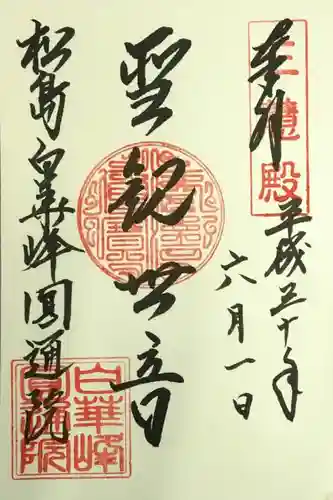 奉拝
三慧殿
平成三十年
六月一日
聖観世音
松島白華峰圓通院
白華峰
圓通院